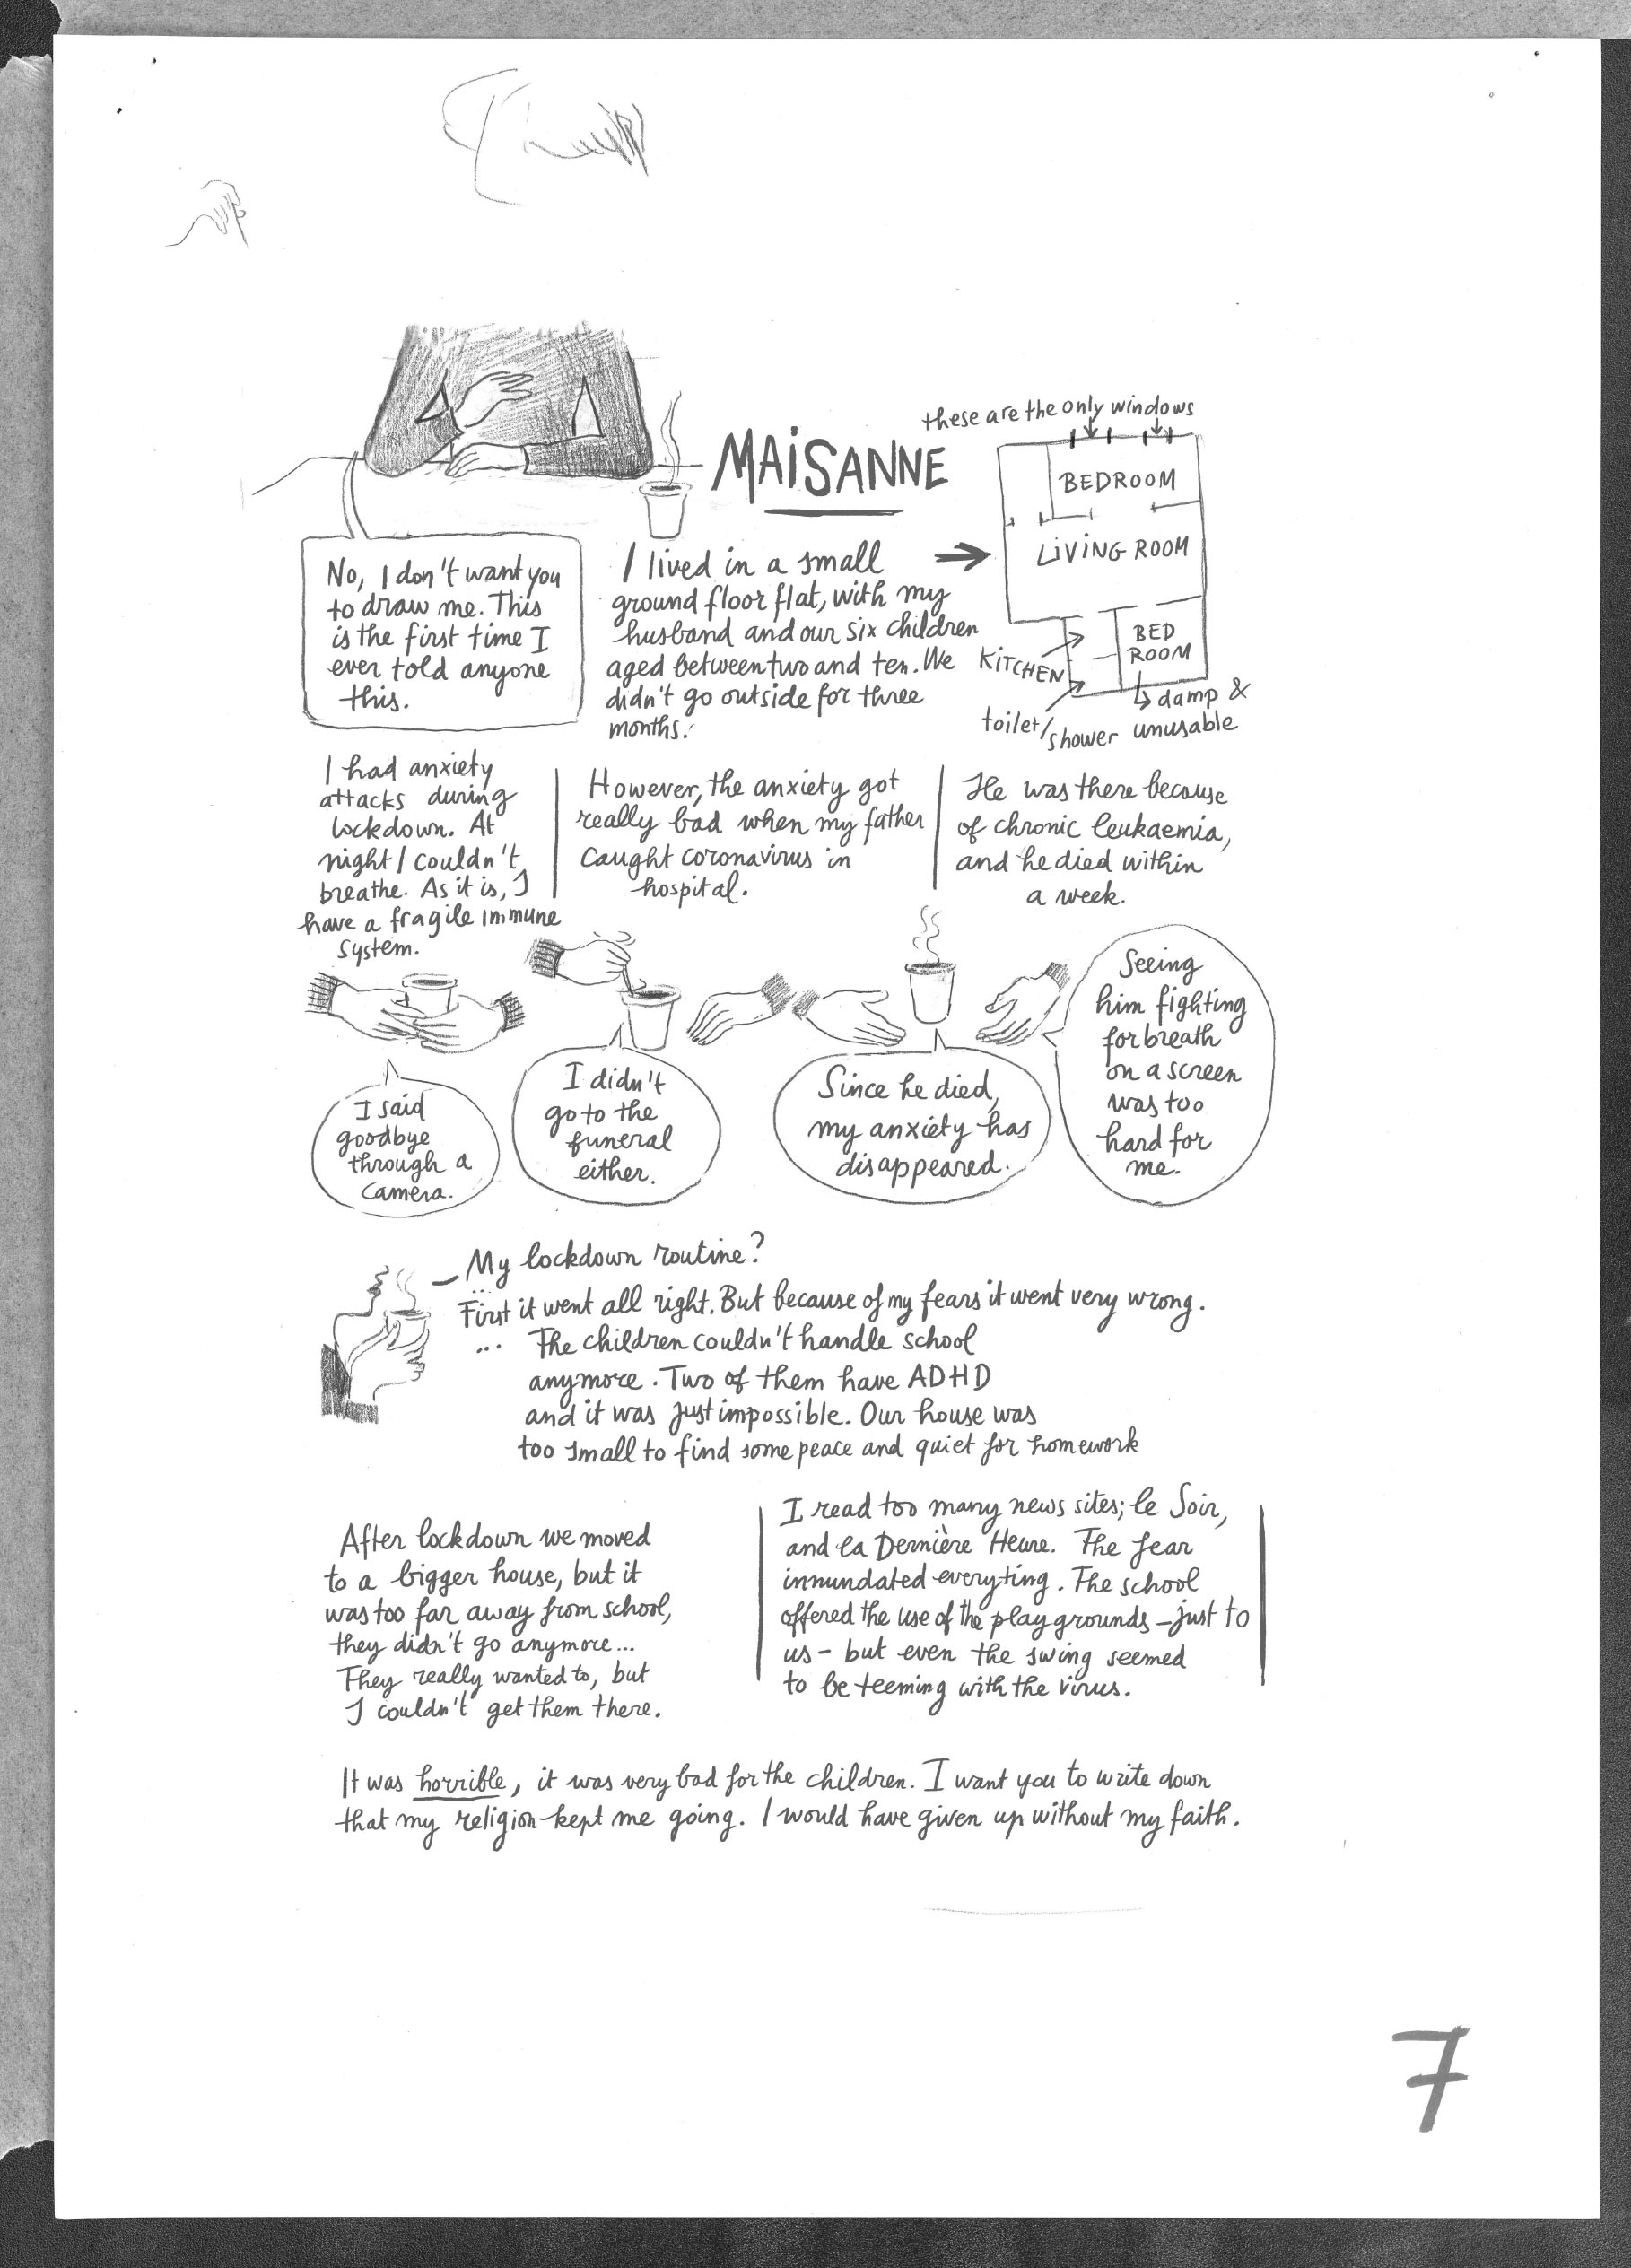 MAISANNE
No, I don't want you
to draw me. This
is the first time I
ever told anyone
this.
I lived in a small
ground floor flat, with my
husband and our six children
aged between two and ten. We
didn't go outside for three
months.
these are the only windows
BEDROOM
LIVING ROOM
BED
ROOM
KITCHEN
toilet/
shower
damp &
unusable
I had anxiety
attacks during
lockdown. At
night I couldn't
breathe. As it is, I
have a fragile immune
system.
However, the anxiety got
really bad when my father
caught coronavirus in
hospital.
He was there because
of chronic leukaemia,
and he died within
a week.
I said
goodbye
through a
camera.
I didn't
go to the
funeral
either.
Since he died,
my anxiety has
disappeared.
Seeing
him fighting
for breath
on a screen
was too
hard for
me.
– My lockdown routine?
...
First it went all right. But because of my fears it went very wrong.
... The children couldn't handle school
anymore. Two of them have ADHD
and it was just impossible. Our house was
too small to find some peace and quiet for homework
After lockdown we moved
to a bigger house, but it
was too far away from school,
they didn't go anymore...
They really wanted to, but
I couldn't get them there.
I read too many news sites; le Soir,
and la Dernière Heure. The fear
innundated everyting. The school
offered the use of the playgrounds – just to
us – but even the swing seemed
to be teeming with the virus.
It was horrible, it was very bad for the children. I want you to write down
that my religion kept me going. I would have given up without my faith.
7